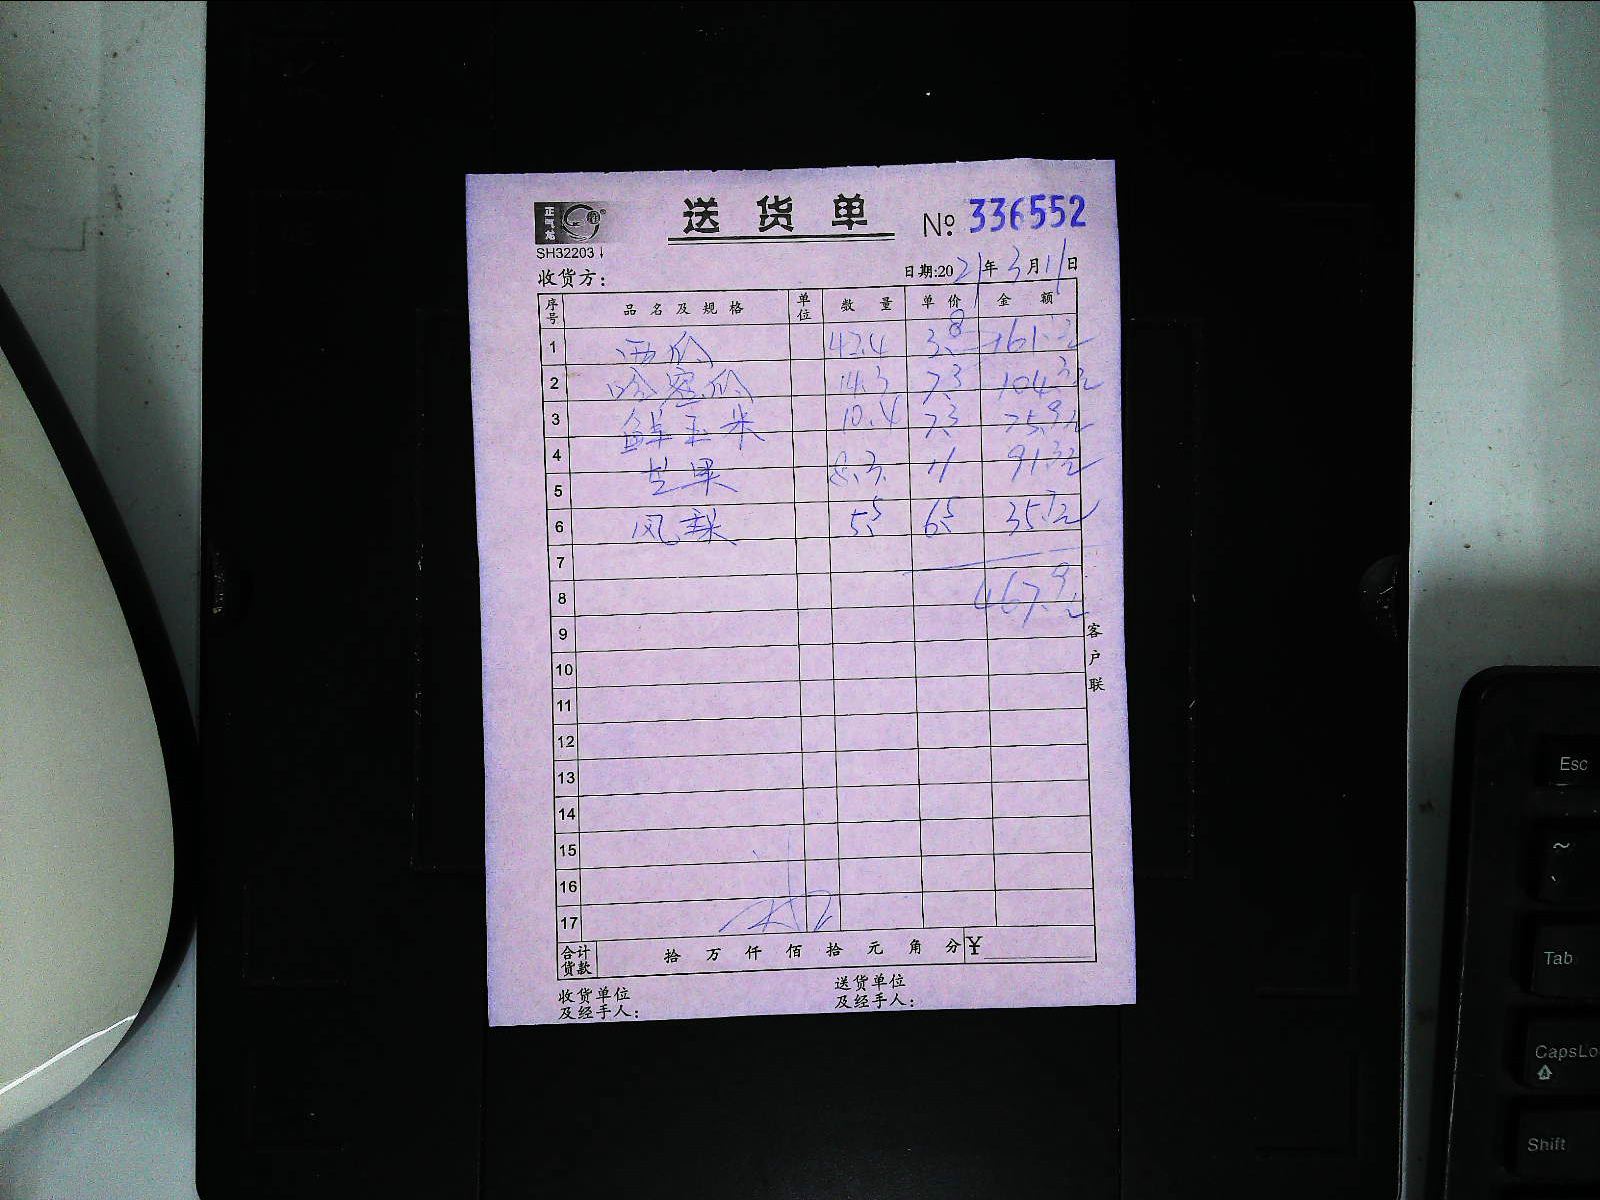 正气龙
送货单 № 336552
SH32203
收货方: 日期:2021年3月11日
序号 品名及规格 单位 数量 单价 金额
1 西瓜 42.4 3.8 161.1元
2 哈密瓜 14.3 7.3 104.3元
3 鲜玉米 10.4 7.3 75.9元
4 芒果 8.3 11 91.3元
5
6 风梨 5.5 6.5 35.7元
7
8 467.9元
9
10
11
12
13
14
15
16
17
合计货款 拾 万 仟 佰 拾 元 角 分 ¥
收货单位及经手人: 送货单位及经手人:
客户联
Esc
~
Tab
CapsLo
Shift